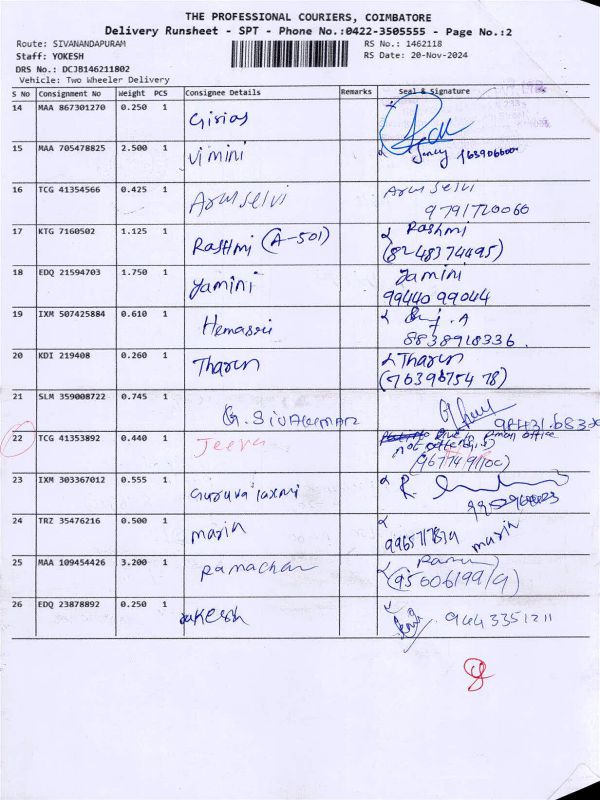 THE PROFESSIONAL COURIERS, COIMBATORE
Delivery Runsheet - SPT - Phone No.:0422-3505555 - Page No.:2
Route: SIVANANDAPURAM
RS No.: 1462118
Staff: YOKESH
RS Date: 20-Nov-2024
DRS No.: DCJB146211802
Vehicle: Two Wheeler Delivery
S No Consignment No Weight PCS Consignee Details Remarks Seal & Signature
14 MAA 867301270 0.250 1 Girias
15 MAA 705478825 2.500 1 Vimini Jency
16 TCG 41354566 0.425 1 Arul selvi Arul selvi
9791720060
17 KTG 7160502 1.125 1 Rashmi (A-501) Rashmi
(8248374495)
18 EDQ 21594703 1.750 1 Yamini Yamini
99440 99044
19 IXM 507425884 0.610 1 Hemasri
8838918336.
20 KDI 219408 0.260 1 Tharun Tharun
(7639675478)
21 SLM 359008722 0.745 1 G. Sivakumar
22 TCG 41353892 0.440 1 Jeeva
23 IXM 303367012 0.555 1 Guruvalaxmi
24 TRZ 35476216 0.500 1 marin marin
25 MAA 109454426 3.200 1 Ramachan
(9500619919)
26 EDQ 23878892 0.250 1 Rakesh 9443351211